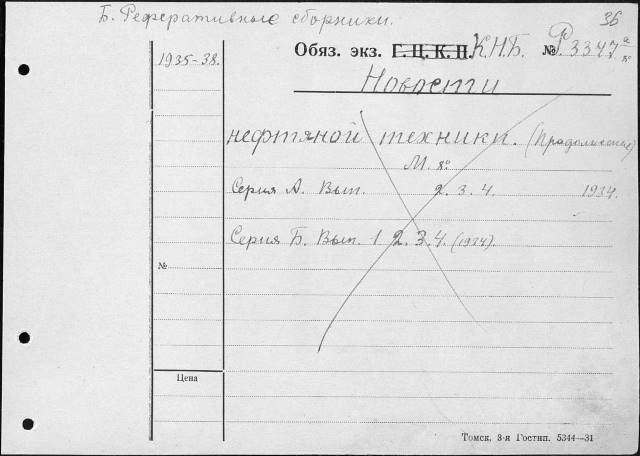 Б. Реферативные сборники.
36
1935-38.
Обяз. экз. Г. Ц. К. П. К.Н.Б. № Р.3347 а
Новости
нефтяной техники. (Продолжение)
М. 8°
Серия А. Вып. 2. 3. 4. 1934.
Серия Б. Вып. 1 2. 3. 4. (1934).
№
Цена
Томск, 3-я Гостип. 5344—31